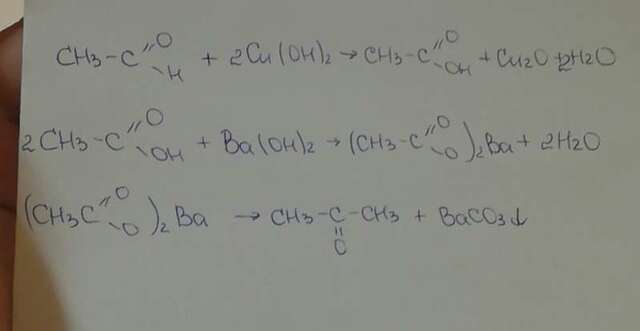 CH3-C=O-H + 2Cu(OH)2 → CH3-C=O-OH + Cu2O + 2H2O
2CH3-C=O-OH + Ba(OH)2 → (CH3-C=O-O)2Ba + 2H2O
(CH3C=O-O)2Ba → CH3-C-CH3 + BaCO3↓
=O